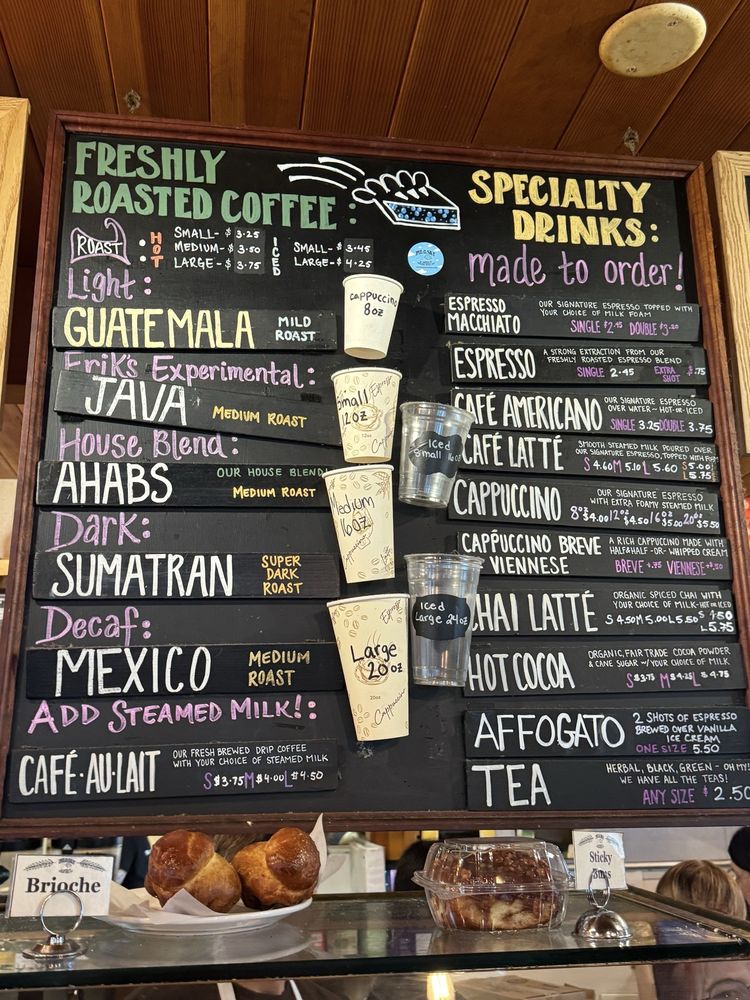 FRESHLY
ROASTED COFFEE:
ROAST: HOT
SMALL- $3.25
MEDIUM- $3.50
LARGE- $3.75
ICED
SMALL- $3.45
LARGE- $4.25
Light:
GUATEMALA MILD
ROAST
Erik's Experimental:
JAVA MEDIUM ROAST
House Blend:
AHABS OUR HOUSE BLEND!
MEDIUM ROAST
Dark:
SUMATRAN SUPER
DARK
ROAST
Decaf:
MEXICO MEDIUM
ROAST
ADD STEAMED MILK!:
CAFÉ·AU·LAIT OUR FRESH BREWED DRIP COFFEE
WITH YOUR CHOICE OF STEAMED MILK
S $3.75 M $4.00 L $4.50
cappuccino
8oz
Small
12oz
Espresso
12oz
Iced
Small 16oz
Medium
16oz
Cappuccino
Iced
Large 24oz
Espresso
Large
20oz
20oz
Cappuccino
SPECIALTY
DRINKS:
made to order!
ESPRESSO
MACCHIATO
OUR SIGNATURE ESPRESSO TOPPED WITH
YOUR CHOICE OF MILK FOAM
SINGLE DOUBLE
ESPRESSO A STRONG EXTRACTION FROM OUR
FRESHLY ROASTED ESPRESSO BLEND
SINGLE 2.45 EXTRA
SHOT $.75
CAFÉ AMERICANO OUR SIGNATURE ESPRESSO
OVER WATER~HOT-OR-ICED
SINGLE 3.25 DOUBLE 3.75
CAFÉ LATTÉ SMOOTH STEAMED MILK POURED OVER
OUR SIGNATURE ESPRESSO, TOPPED WITH FOAM
S 4.60 M 5.10 L 5.60 S 5.00
L 5.75
CAPPUCCINO OUR SIGNATURE ESPRESSO
WITH EXTRA FOAMY STEAMED MILK
8oz $4.00 12oz $4.50 16oz $5.00 20oz $5.50
CAPPUCCINO BREVE
VIENNESE
A RICH CAPPUCCINO MADE WITH
HALF&HALF-OR-WHIPPED CREAM
BREVE VIENNESE
CHAI LATTÉ ORGANIC SPICED CHAI WITH
YOUR CHOICE OF MILK-HOT OR ICED
S 4.50 M 5.00 L 5.50 S 4.50
L 5.75
HOT COCOA ORGANIC, FAIR TRADE COCOA POWDER
& CANE SUGAR ~/YOUR CHOICE OF MILK
S $3.75 M $4.25 L $4.75
AFFOGATO 2 SHOTS OF ESPRESSO
BREWED OVER VANILLA
ICE CREAM
ONE SIZE 5.50
TEA HERBAL, BLACK, GREEN - OH MY!
WE HAVE ALL THE TEAS!
ANY SIZE $2.50
Brioche
Sticky
Buns